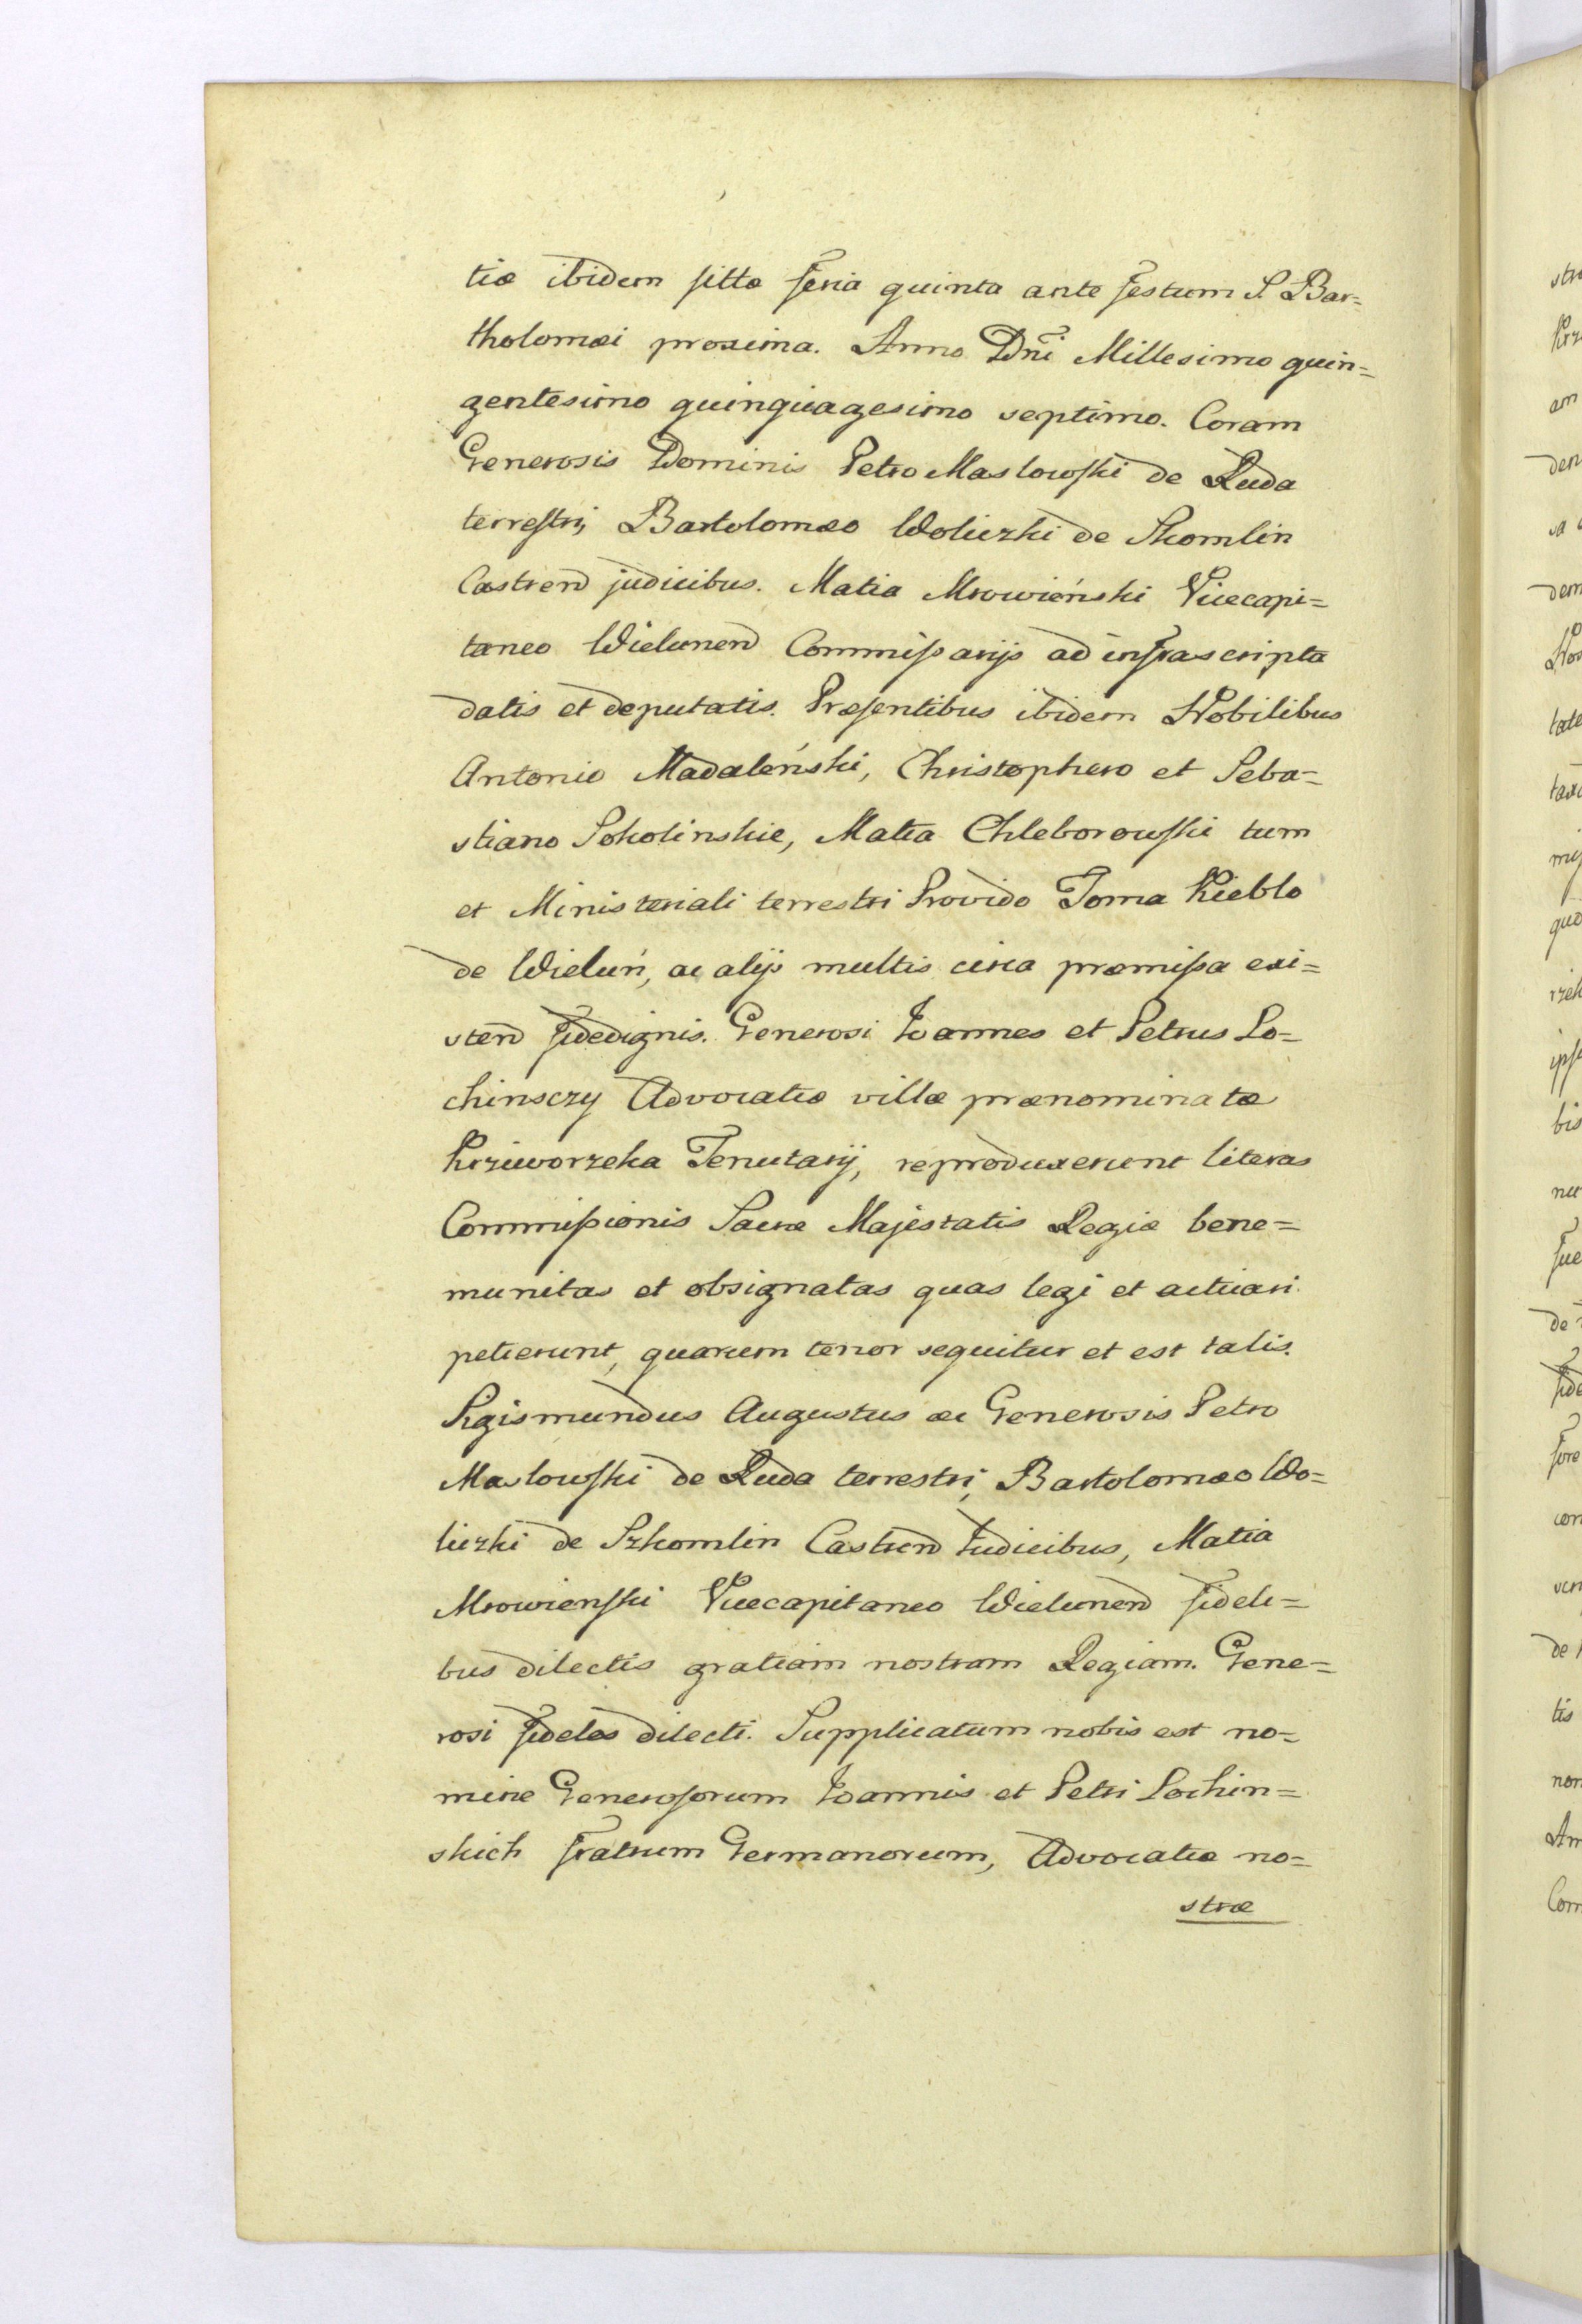 tiæ ibidem sittæ feria quinta ante festum S. Bar=
tholomæi proxima. Anno Dni Millesimo quin=
gentesimo quinquagesimo septimo. Coram
Generosis Dominis Petro Maslowski de Ruda
terrestri, Bartolomæo Woliczki de Skomlin
Castren judicibus. Matia Mrowieński Vicecapi=
taneo Wielunen Commissarijs ad infrascripta
datis et deputatis. Præsentibus ibidem Nobilibus
Antonio Madaleński, Christophero et Seba=
stiano Sokolinskie, Matia Chleborowski tum
et Ministeriali terrestri Provido Toma Kieblo
de Wieluń, ac alijs multis circa præmissa exi=
sten fidedignis. Generosi Joannes et Petrus Lo=
chinsczy Advocatiæ villæ prænominatæ
Krziworzeka Tenutarij, reproduxerunt literas
Commissionis Sacræ Majestatis Regiæ bene=
munitas et obsignatas quas legi et acticari
petierunt, quarum tenor sequitur et est talis.
Sigismundus Augustus ac Generosis Petro
Maslowski de Ruda terrestri, Bartolomæo Wo=
liczki de Szkomlin Castren Judicibus, Matia
Mrowienski Vicecapitaneo Wielunen fideli=
bus dilectis gratiam nostram Regiam. Gene=
rosi fideles dilecti. Supplicatum nobis est no=
mine Generosorum Joannis et Petri Lochin=
skich fratrum Germanorum, Advocatiæ no=
stræ